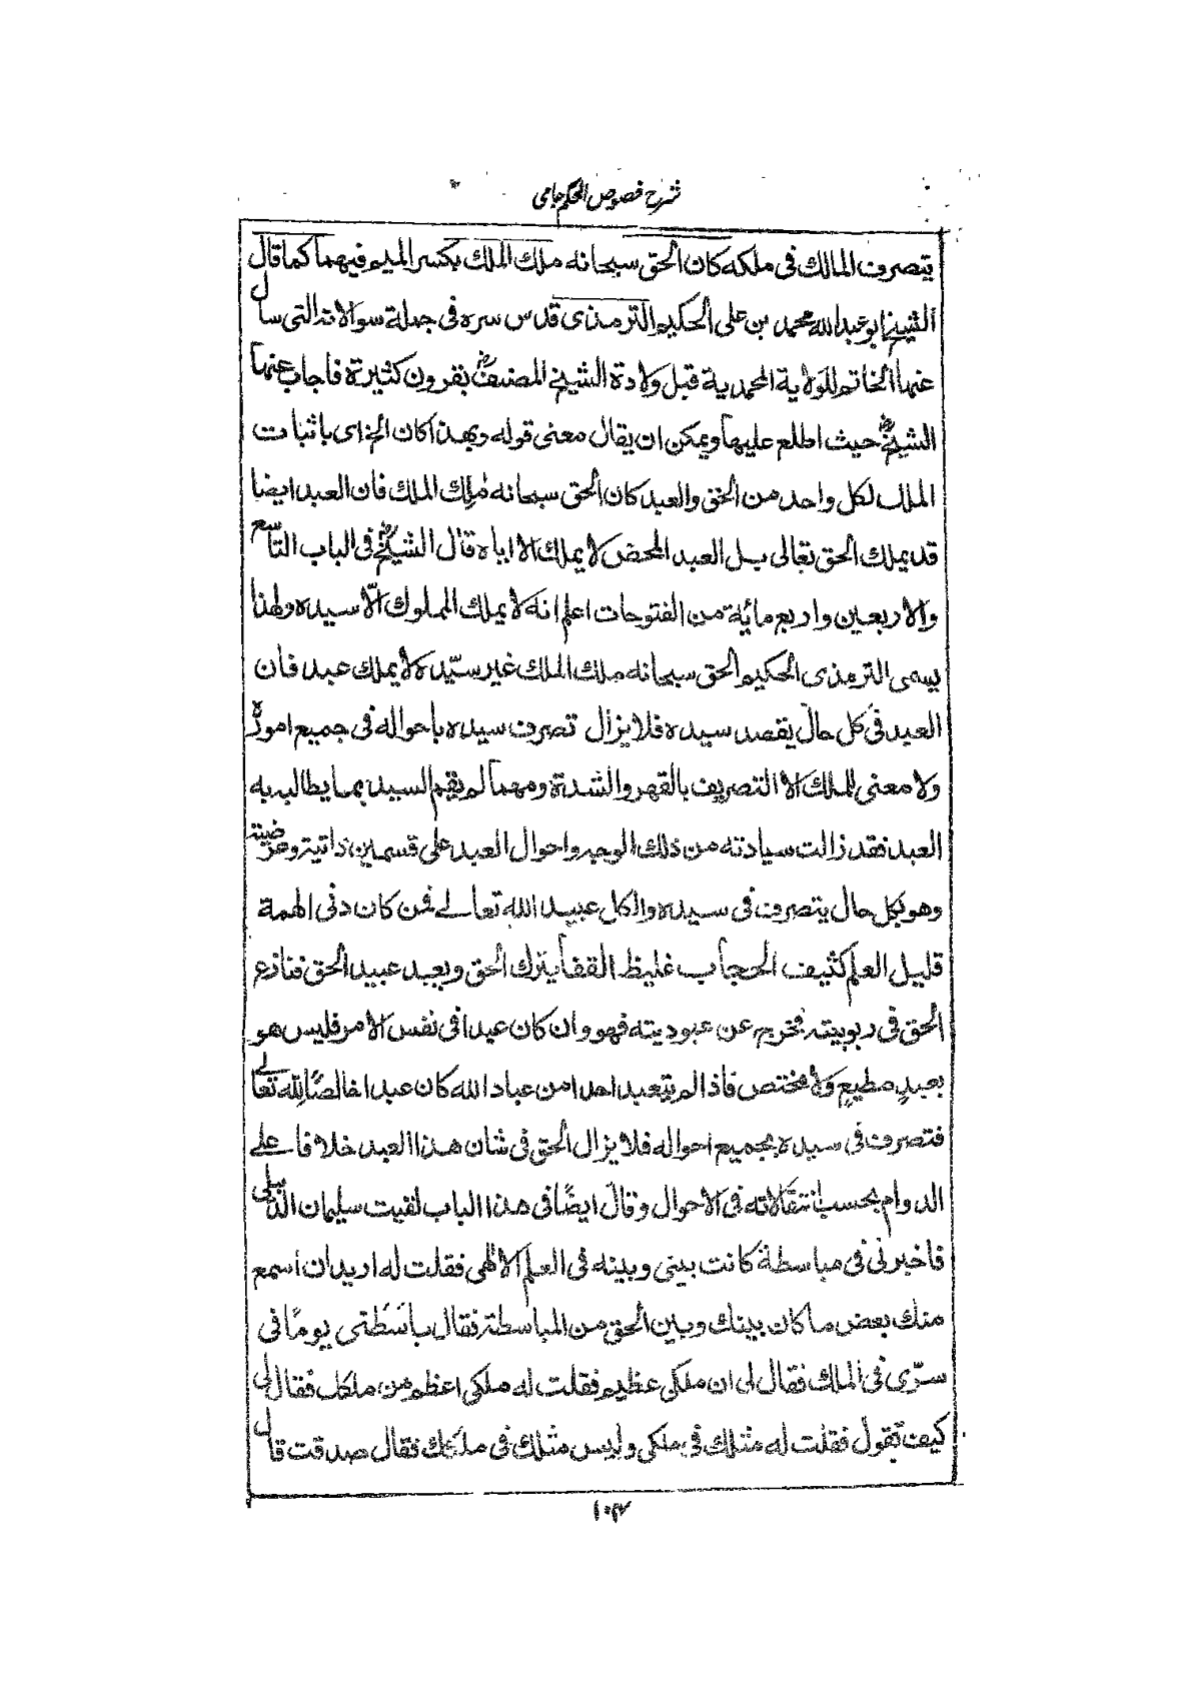 شرح فصوص الحکم جامی
يتصرف المالك فی ملكه كان الحق سبحانه ملك الملك بكسر الميم فيهما كما قال
الشيخ ابو عبدالله محمد بن علی الحكيم الترمذی قدس سره فی جملة سوالاته التی سال
عنها الخاتم للولاية المحمدية قبل ولادة الشيخ المصنف رض بقرون كثيرة فاجاب عنها
الشيخ رض حيث اطلع عليها ويمكن ان يقال معنی قوله وبهذا كان الجزای باثبات
الملك لكل واحد من الحق والعبد كان الحق سبحانه مُلِك الملك فان العبد ايضا
قد يملك الحق تعالی بل العبد المحض لا يملك الا اياه قال الشيخ رض فی الباب التاسع
والاربعين واربع مائة من الفتوحات اعلم انه لا يملك المملوك الّا سيده ولهذا
يسمی الترمذی الحكيم الحق سبحانه ملك الملك غير سيّده لا يملك عبد فان
العبد فی كل حال يقصد سيده فلا يزال تصرف سيده باحواله فی جميع اموره
ولا معنی للملك الا التصريف بالقهر والشدة ومهما لم يقم السيد بما يطالبه به
العبد فقد زالت سيادته من ذلك الوجه واحوال العبد علی قسمين ذاتية وعرضية
وهو بكل حال يتصرف فی سيده والكل عبيد الله تعالے فمن كان دنی الهمة
قليل العلم كثيف الحجاب غليظ القفا يترك الحق ويعبد عبيد الحق فنازع
الحق فی ربوبيته فخرج عن عبوديته فهو وان كان عبدا فی نفس الامر فليس هو
بعبدٍ مطيعٍ ولا مختص فاذا لم يتعبد احدا من عباد الله كان عبدا خالصًا لله تعالے
فتصرف فی سيده بجميع احواله فلا يزال الحق فی شان هذا العبد خلافا علے
الدوام بحسب انتقالاته فی الاحوال وقال ايضًا فی هذا الباب لقيت سليمان الدنبلی
فاخبرنی فی مباسطة كانت بينی وبينه فی العلم الالٰهی فقلت له اريد ان اسمع
منك بعض ما كان بينك وبين الحق من المباسطة فقال باسَطَنی يومًا فی
سرّی فی الملك فقال لی ان ملكی عظيم فقلت له ملكی اعظم من ملكك فقال لی
كيف تقول فقلت له مثلك فی ملكی وليس مثلك فی ملكك فقال صدقت قال